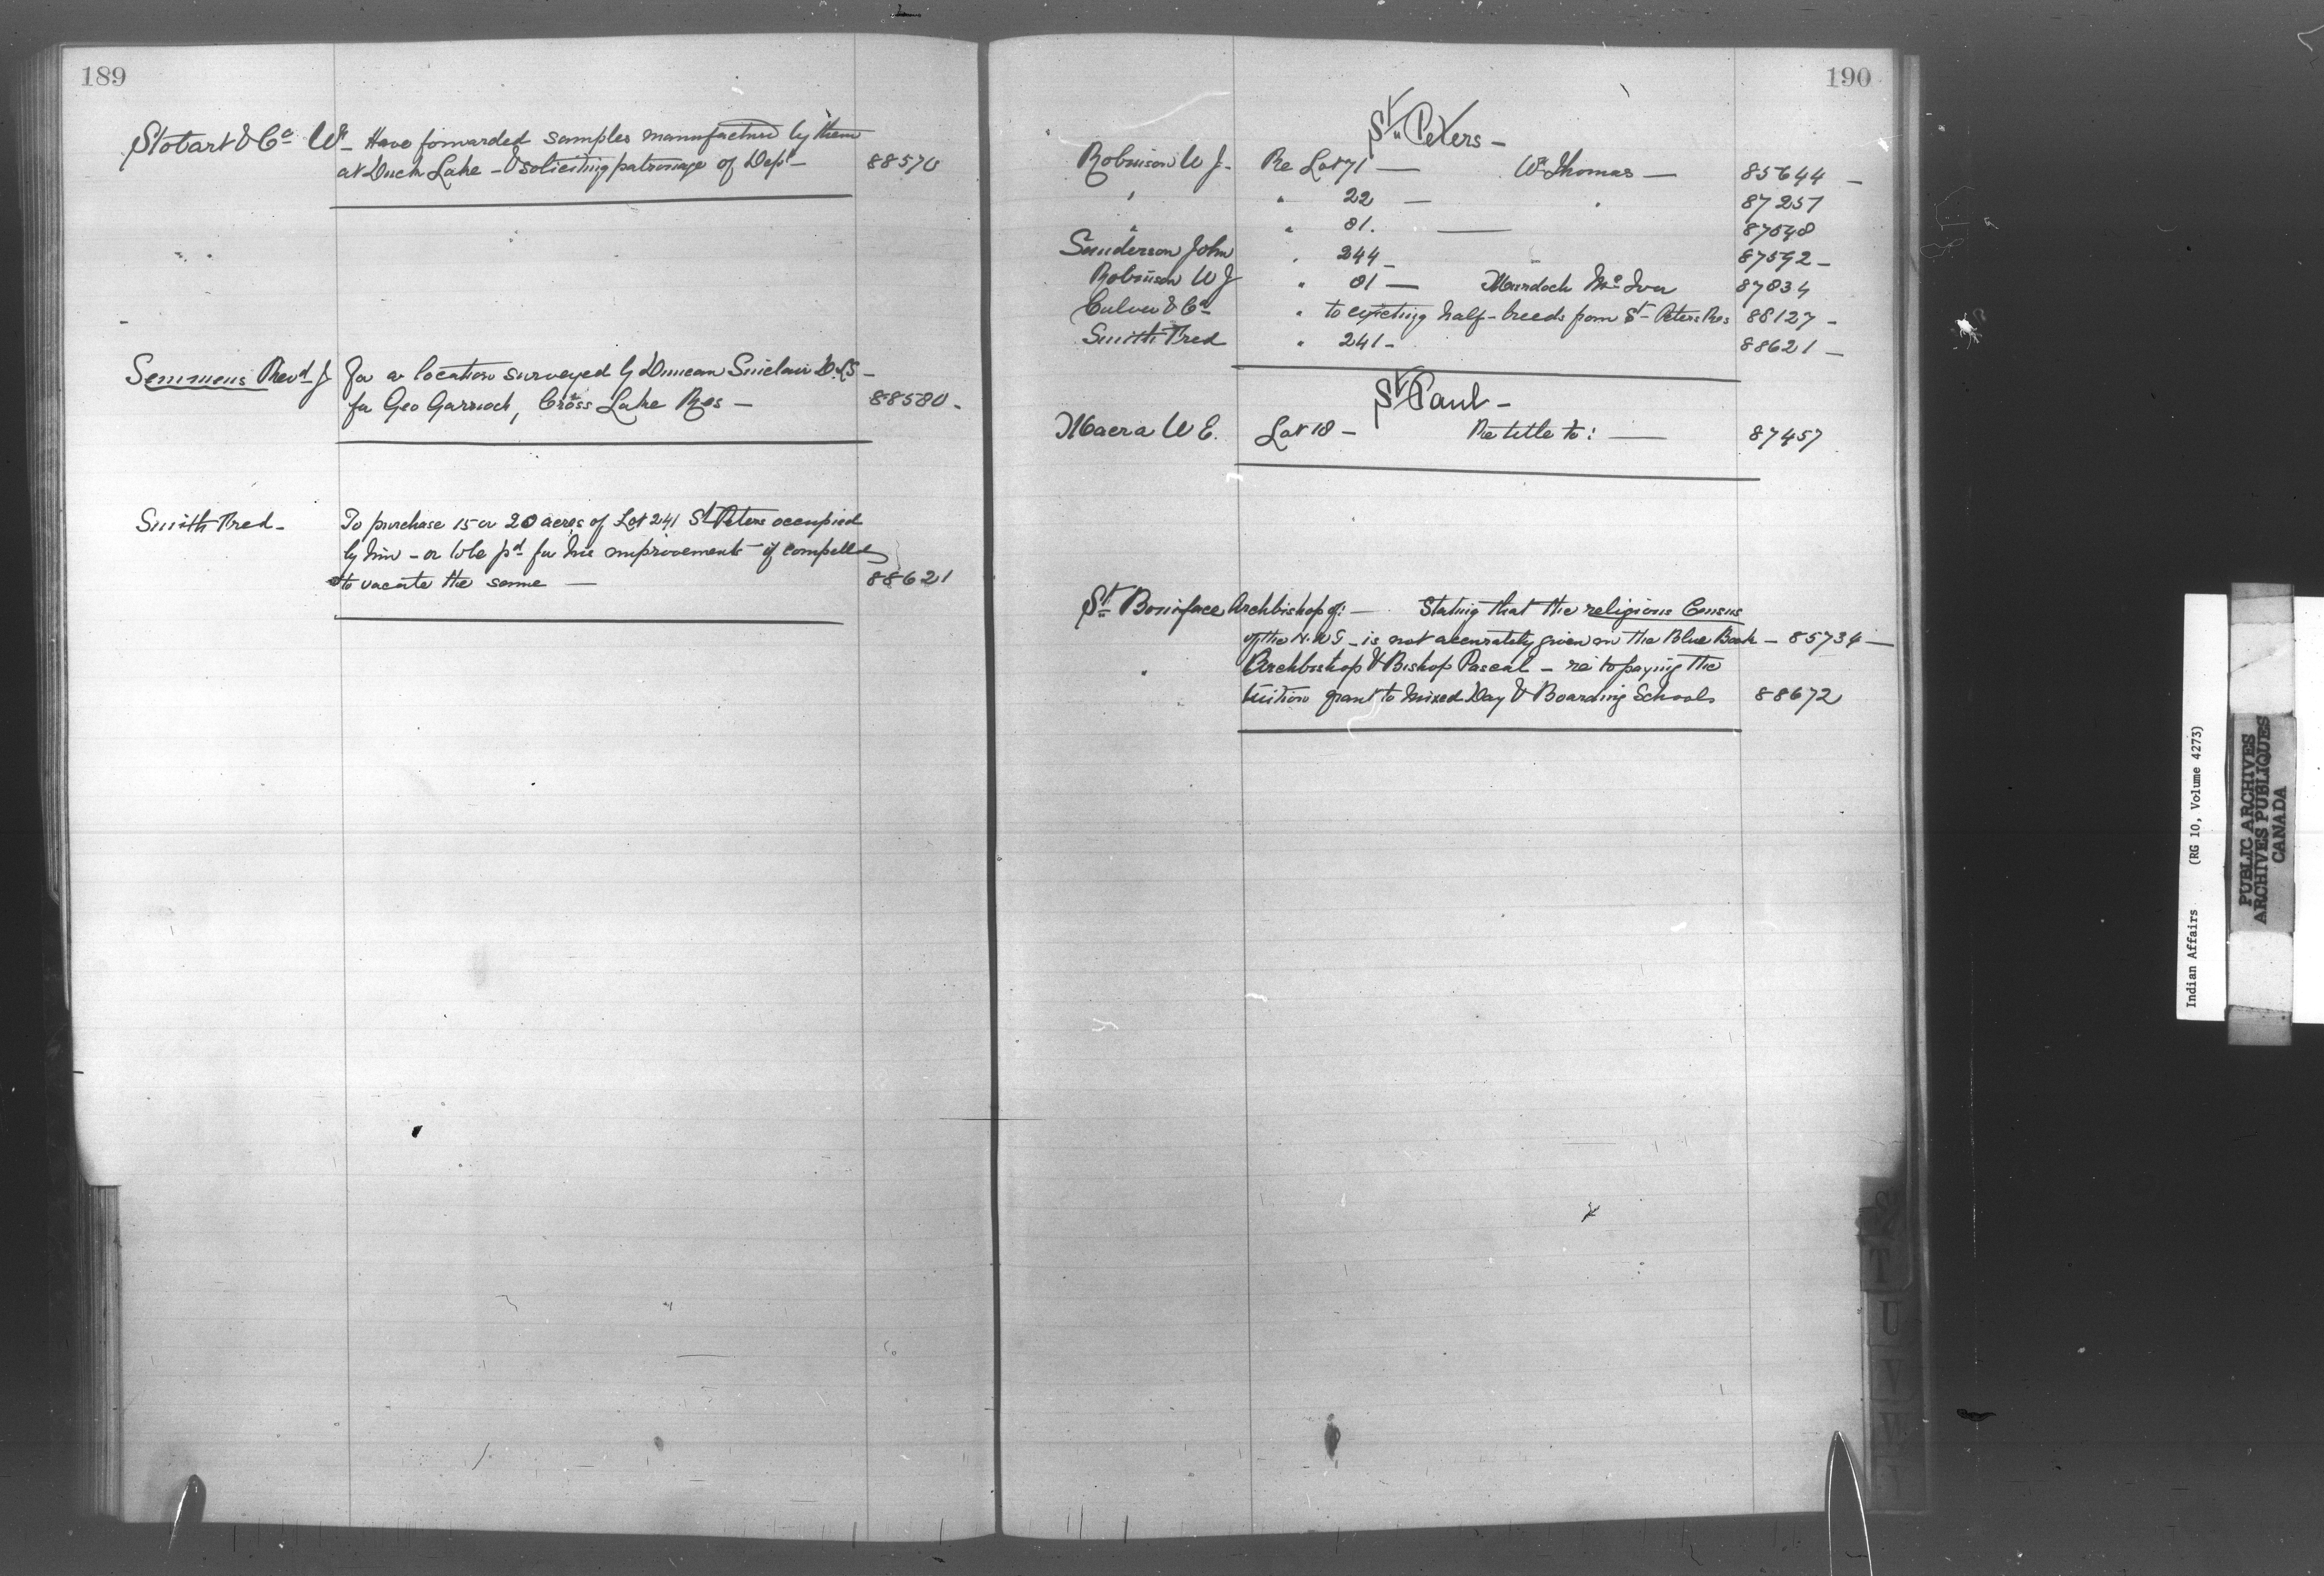 189
Stobart & Co Wm Have forwarded samples manufactured by them
at Duck Lake - & soliciting patronage of Dept - 88570
Semmens Revd J for a location surveyed by Duncan Sinclair D.L.S -
for Geo Garrioch, Cross Lake Res - 88580 -
Smith Fred - To purchase 15 or 20 acres of Lot 241 St Peters occupied
by him - or to be pd for his improvements if compelled
to vacate the same - 88621
190
St Peters -
Robinson W J - Re Lot 71 — Wm Thomas — 85644 -
" " 22 — " 87257
" " 81. —
Sanderson John " 244 - 87592 -
Robinson W J " 81 — Murdoch McIvor 87834
Culver & Co " to ejecting half-breeds from St Peters Res 88127 -
Smith Fred " 241 - 88621 -
St Paul -
Macara W E. Lot 18 - Re title to: — 87457
St Boniface Archbishop of: — Stating that the religious Census
of the N.W.T - is not accurately given in the Blue Book - 85734 -
" Archbishop & Bishop Pascal - re to paying the
tuition grant to mixed Day & Boarding Schools 88672
T
U
V
W
Y
Indian Affairs (RG 10, Volume 4273)
PUBLIC ARCHIVES
ARCHIVES PUBLIQUES
CANADA